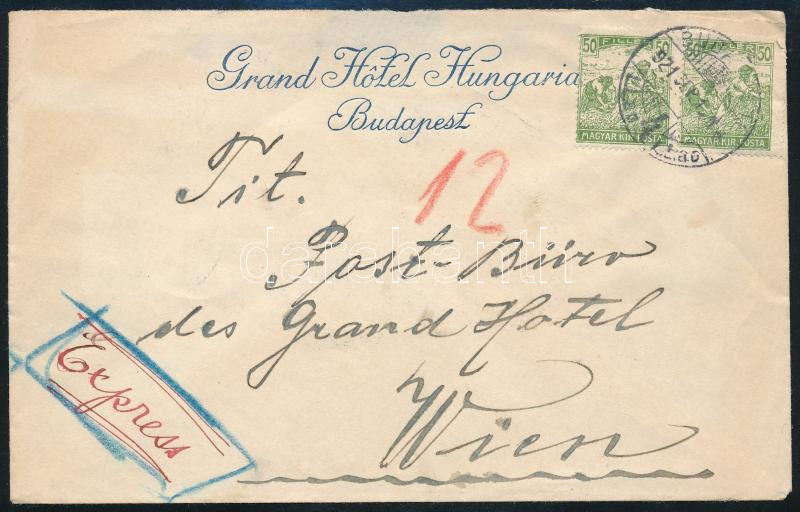 Grand Hôtel Hungaria
Budapest
50 FILLÉR 50
MAGYAR KIR. POSTA
50 FILLÉR 50
MAGYAR KIR. POSTA
12
Tit.
Post-Büro
des Grand Hotel
Wien
Express
darabanth